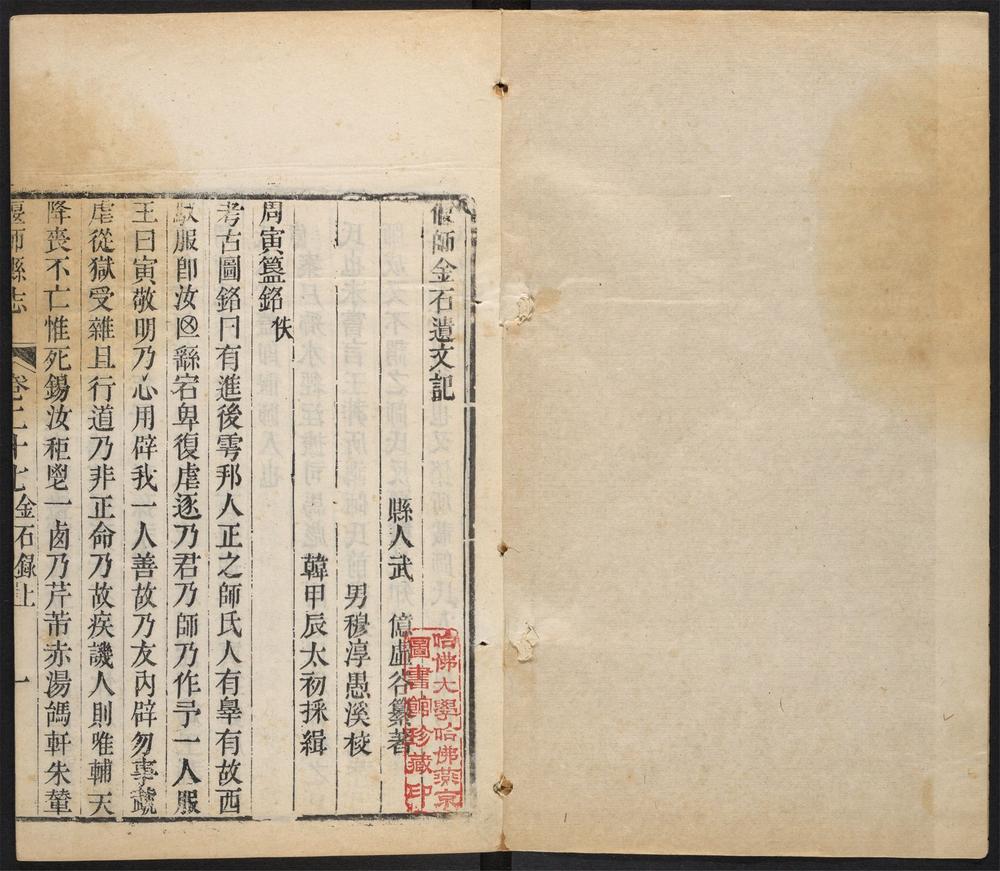 偃師金石遺文記
縣人武　億虛谷纂著
男穆淳愚溪校
韓甲辰太初採緝
周寅簋銘佚
考古圖銘曰有進後雩邦人正之師氏人有辠有故西
服卽汝繇宕卑復虐逐乃君乃師乃作予一人服
王曰寅敬明乃心用辟我一人善故乃友內辟勿事虣
虐從獄受雜且行道乃非正命乃故疾譏人則唯輔天
降喪不亡惟死錫汝秬鬯一卣乃芹芾赤湯䩛軒朱鞏
偃師縣志
卷二十七金石錄上
一
哈佛大學哈佛燕京
圖書館珍藏印